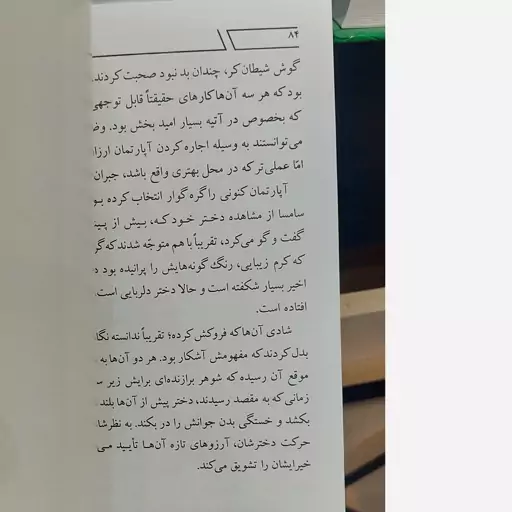 ۸۴
گوش شیطان کر، چندان بد نبود صحبت کردند.
بود که هر سه آن‌ها کارهای حقیقتاً قابل توجهی
که بخصوص در آتیه بسیار امید بخش بود. وض
می‌توانستند به وسیله اجاره کردن آپارتمان ارزا
امّا عملی‌تر که در محل بهتری واقع باشد، جبران
آپارتمان کنونی را گره گوار انتخاب کرده بو
سامسا از مشاهده دختر خود که، بیش از پیش
گفت و گو می‌کرد، تقریباً با هم متوجّه شدند که گر
که کرم زیبایی، رنگ گونه‌هایش را پرانیده بود
اخیر بسیار شکفته است و حالا دختر دلربایی است
افتاده است.
شادی آن‌ها که فروکش کرده؛ تقریباً ندانسته نگا
بدل کردند که مفهومش آشکار بود. هر دو آن‌ها به
موقع آن رسیده که شوهر برازنده‌ای برایش زیر س
زمانی که به مقصد رسیدند، دختر پیش از آن‌ها بلند
بکشد و خستگی بدن جوانش را در بکند. به نظرشا
حرکت دخترشان، آرزوهای تازه آن‌ها تأیید می
خیرایشان را تشویق می‌کند.